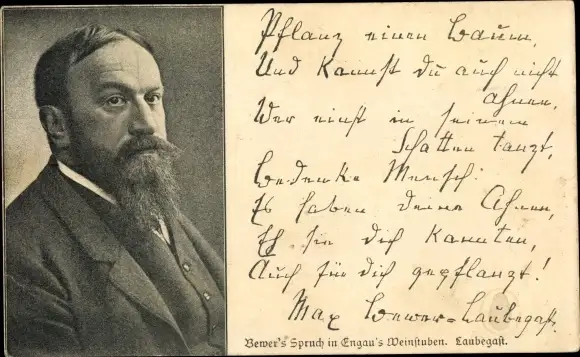 Pflanz einen Baum,
Und kannst du auch nicht
ahnen,
Wer einst in seinem
Schatten tanzt,
Bedenke Mensch:
Es haben deine Ahnen,
Eh sie dich kannten,
Auch für dich gepflanzt!
Max Bewer-Laubegast.
Bewer's Spruch in Engau's Weinstuben. Laubegast.